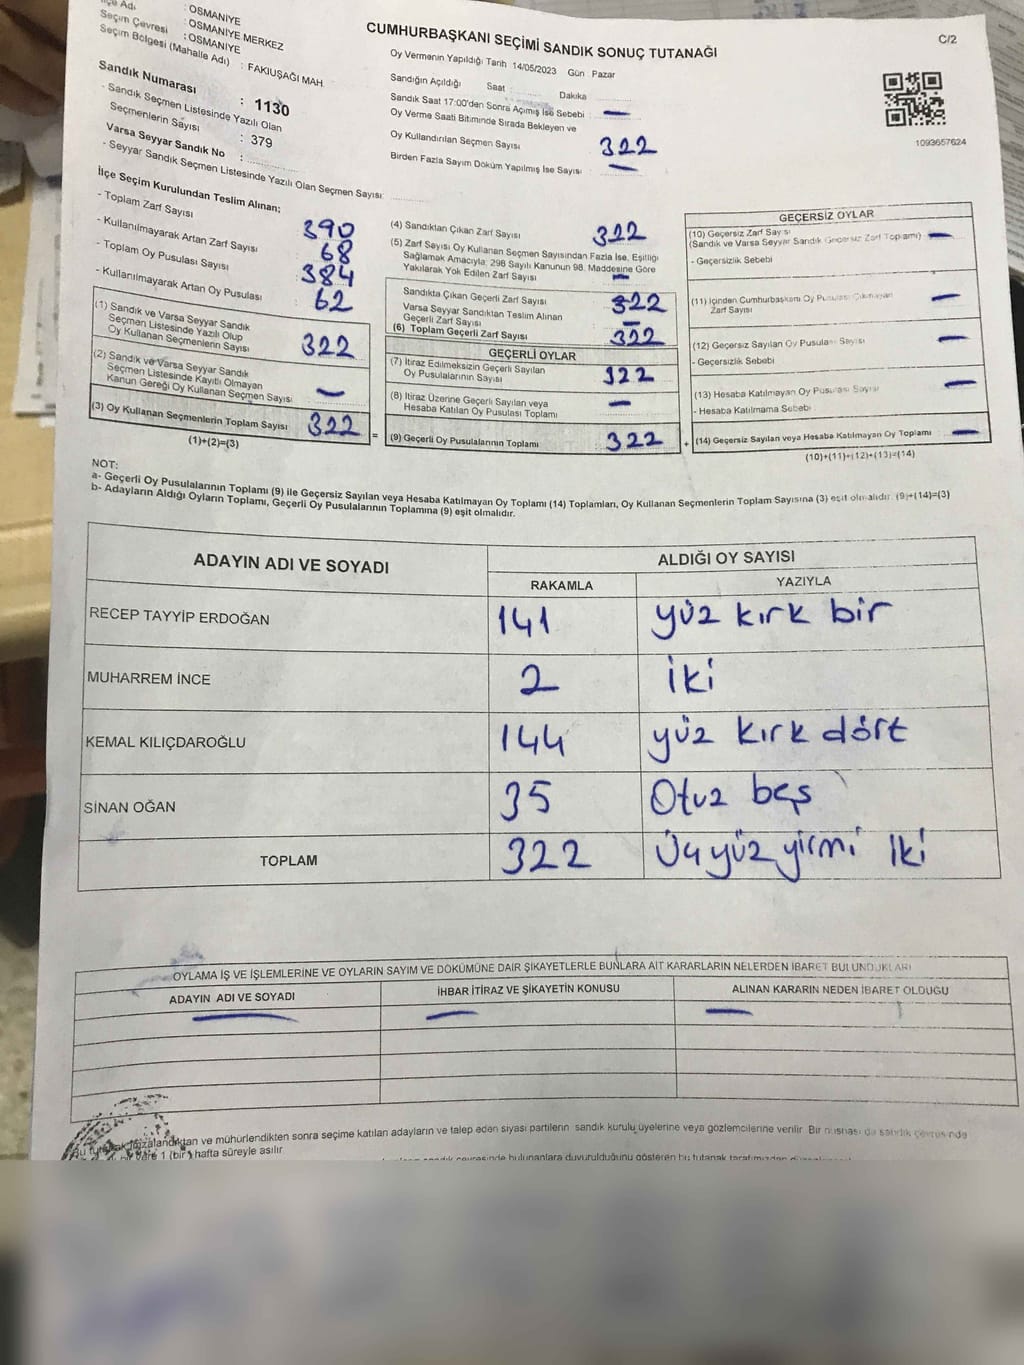 : OSMANİYE
Seçim Çevresi : OSMANİYE MERKEZ
: OSMANİYE
Seçim Bölgesi (Mahalle Adı) : FAKIUŞAĞI MAH.
Sandık Numarası : 1130
- Sandık Seçmen Listesinde Yazılı Olan
Seçmenlerin Sayısı : 379
Varsa Seyyar Sandık No :
- Seyyar Sandık Seçmen Listesinde Yazılı Olan Seçmen Sayısı:
CUMHURBAŞKANI SEÇİMİ SANDIK SONUÇ TUTANAĞI
C/2
Oy Vermenin Yapıldığı Tarih 14/05/2023 Gün : Pazar
Sandığın Açıldığı Saat Dakika
Sandık Saat 17:00'den Sonra Açımış İse Sebebi : —
Oy Verme Saati Bitiminde Sırada Bekleyen ve
Oy Kullandırılan Seçmen Sayısı : 322
Birden Fazla Sayım Döküm Yapılmış İse Sayısı : —
1093657624
İlçe Seçim Kurulundan Teslim Alınan;
- Toplam Zarf Sayısı 390
- Kullanılmayarak Artan Zarf Sayısı 68
- Toplam Oy Pusulası Sayısı 384
- Kullanılmayarak Artan Oy Pusulası 62
(1) Sandık ve Varsa Seyyar Sandık
Seçmen Listesinde Yazılı Olup
Oy Kullanan Seçmenlerin Sayısı 322
(2) Sandık ve Varsa Seyyar Sandık
Seçmen Listesinde Kayıtlı Olmayan
Kanun Gereği Oy Kullanan Seçmen Sayısı —
(3) Oy Kullanan Seçmenlerin Toplam Sayısı 322
(1)+(2)=(3)
(4) Sandıktan Çıkan Zarf Sayısı 322
(5) Zarf Sayısı Oy Kullanan Seçmen Sayısından Fazla İse, Eşitliği
Sağlamak Amacıyla; 298 Sayılı Kanunun 98. Maddesine Göre
Yakılarak Yok Edilen Zarf Sayısı —
Sandıkta Çıkan Geçerli Zarf Sayısı 322
Varsa Seyyar Sandıktan Teslim Alınan
Geçerli Zarf Sayısı —
(6) Toplam Geçerli Zarf Sayısı 322
GEÇERLİ OYLAR
(7) İtiraz Edilmeksizin Geçerli Sayılan
Oy Pusulalarının Sayısı 322
(8) İtiraz Üzerine Geçerli Sayılan veya
Hesaba Katılan Oy Pusulası Toplamı —
= (9) Geçerli Oy Pusulalarının Toplamı : 322
GEÇERSİZ OYLAR
(10) Geçersiz Zarf Sayısı
(Sandık ve Varsa Seyyar Sandık Geçersiz Zarf Toplamı) —
- Geçersizlik Sebebi
(11) İçinden Cumhurbaşkanı Oy Pusulası Çıkmayan
Zarf Sayısı —
(12) Geçersiz Sayılan Oy Pusulası Sayısı —
- Geçersizlik Sebebi
(13) Hesaba Katılmayan Oy Pusulası Sayısı —
- Hesaba Katılmama Sebebi
+ (14) Geçersiz Sayılan veya Hesaba Katılmayan Oy Toplamı —
(10)+(11)+(12)+(13)=(14)
NOT:
a- Geçerli Oy Pusulalarının Toplamı (9) ile Geçersiz Sayılan veya Hesaba Katılmayan Oy Toplamı (14) Toplamları, Oy Kullanan Seçmenlerin Toplam Sayısına (3) eşit olmalıdır. (9)+(14)=(3)
b- Adayların Aldığı Oyların Toplamı, Geçerli Oy Pusulalarının Toplamına (9) eşit olmalıdır.
ADAYIN ADI VE SOYADI ALDIĞI OY SAYISI
RAKAMLA YAZIYLA
RECEP TAYYİP ERDOĞAN 141 yüz kırk bir
MUHARREM İNCE 2 iki
KEMAL KILIÇDAROĞLU 144 yüz kırk dört
SİNAN OĞAN 35 Otuz beş
TOPLAM 322 Üçyüz yirmi İki
OYLAMA İŞ VE İŞLEMLERİNE VE OYLARIN SAYIM VE DÖKÜMÜNE DAİR ŞİKAYETLERLE BUNLARA AİT KARARLARIN NELERDEN İBARET BULUNDUKLARI
ADAYIN ADI VE SOYADI İHBAR İTİRAZ VE ŞİKAYETİN KONUSU ALINAN KARARIN NEDEN İBARET OLDUĞU
— — —
Bu tutanak imzalandıktan ve mühürlendikten sonra seçime katılan adayların ve talep eden siyasi partilerin sandık kurulu üyelerine veya gözlemcilerine verilir. Bir nüshası da sandık çevresinde
1 (bir) hafta süreyle asılır.